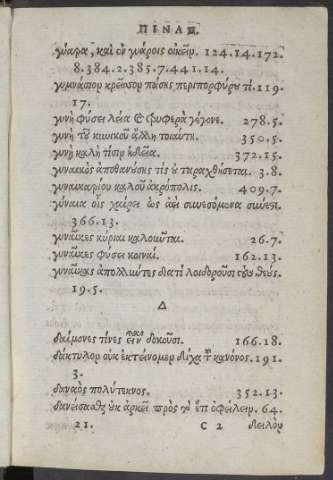 ΠΙΝΑΞ.
γύαρα, καὶ ἐν γυάροις οἰκεῖν. 124.14.172.
8.384.2.385.7.441.14.
γυμνάσιον κρεῖσσον πάσης περιπορφύρου τί. 119.
17.
γυνὴ φύσει λεία καὶ τρυφερὰ γέγονε. 278.5.
γυνὴ τοῦ κυνικοῦ ἄλλη τοιαύτη. 350.5.
γυνὴ καλὴ τίσιν ἡδεῖα. 372.15.
γυναικὸς ἀποθανούσης τίς οὐ ταραχθήσεται. 3.8.
καλοῦ ἀκρόπολις. 409.7.
οἷς χαίρει ὡς ἀεὶ συνεσόμενα
366.13.
γυναῖκες κύριαι καλοῦνται. 26.7.
γυναῖκες φύσει κοιναί. 162.13.
γυναῖκας ἀπολλύντες διατί λοιδοροῦσι τοὺς θεούς.
19.5.
Δ
δαίμονες τίνες εἶναι δοκοῦσι. 166.18.
δάκτυλον οὐκ ἐκτείνομεν δίχα τοῦ κανόνος. 191.
3.
δαναὸς πολύτεκνος. 352.13.
δανείσασθαι οὐκ ἀρκεῖ πρὸς τὸ ἔτι ὀφείλειν. 64.
21. C 2 δειλὸν